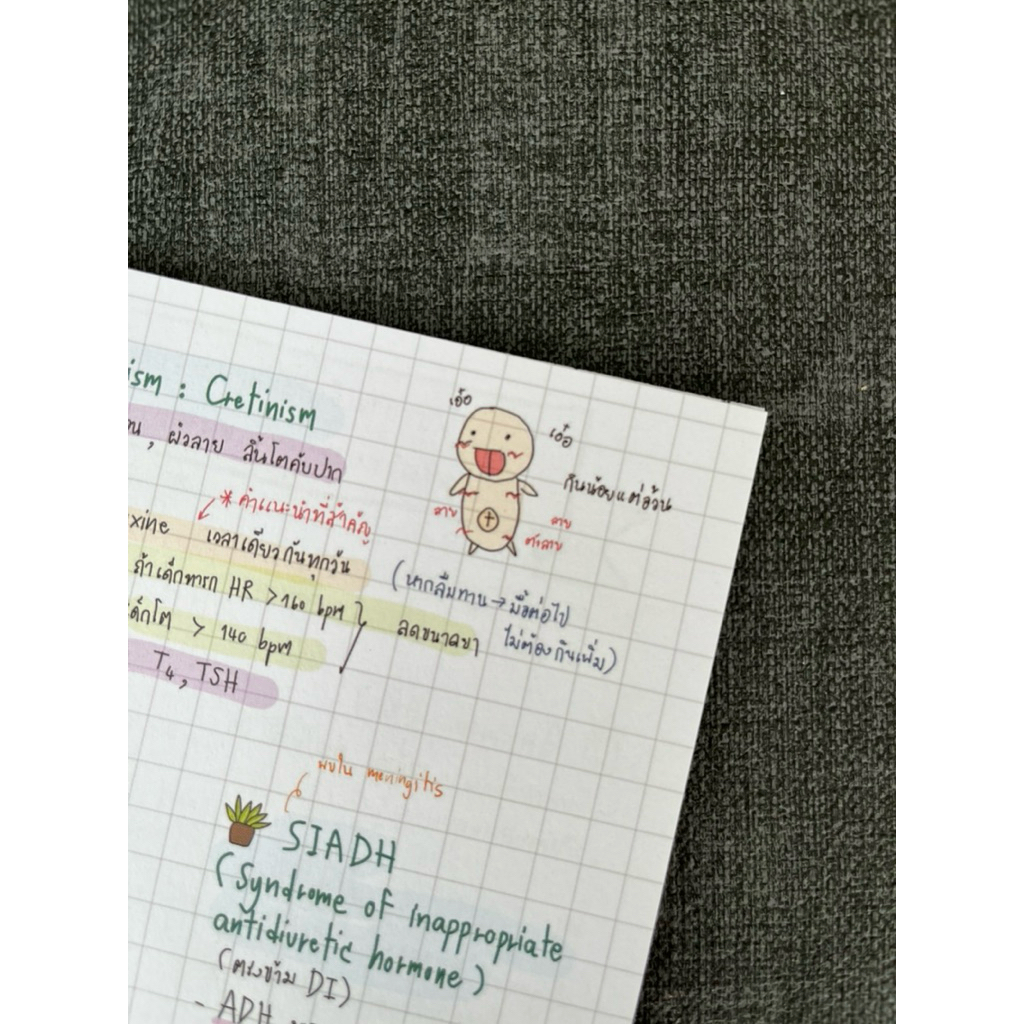 ism : Cretinism
, ผิวลาย ลิ้นโตคับปาก
เอ๋อ
เอ๋อ
กินน้อยแต่อ้วน
ลาย
ลาย
ตัวลาย
* คำแนะนำที่สำคัญ
xine เวลาเดียวกันทุกวัน
(หากลืมทาน → มื้อต่อไป
ไม่ต้องกินเพิ่ม)
ถ้าเด็กทารก HR > 160 bpm
ด็กโต > 140 bpm
ลดขนาดยา
T4, TSH
พบใน meningitis
SIADH
(Syndrome of inappropriate
antidiuretic hormone)
(ตรงข้าม DI)
- ADH